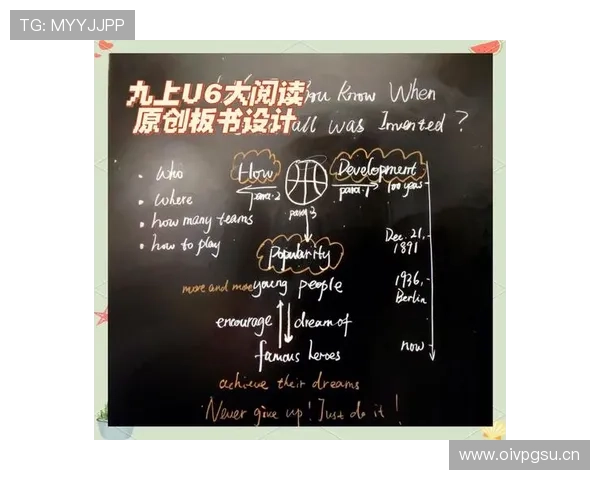 TG: MYYJJPP
九上U6大阅读
原创板书设计
You Know When
all was Invented?
who
where
how many teams
how to play
How
para.2
Development
para.1
100 years
para.3
Popularity
Dec. 21,
1891
1936,
Berlin
now
more and more young people
encourage
dream of
famous heroes
achieve their dreams
Never give up! Just do it!
www.oivpgsu.cn